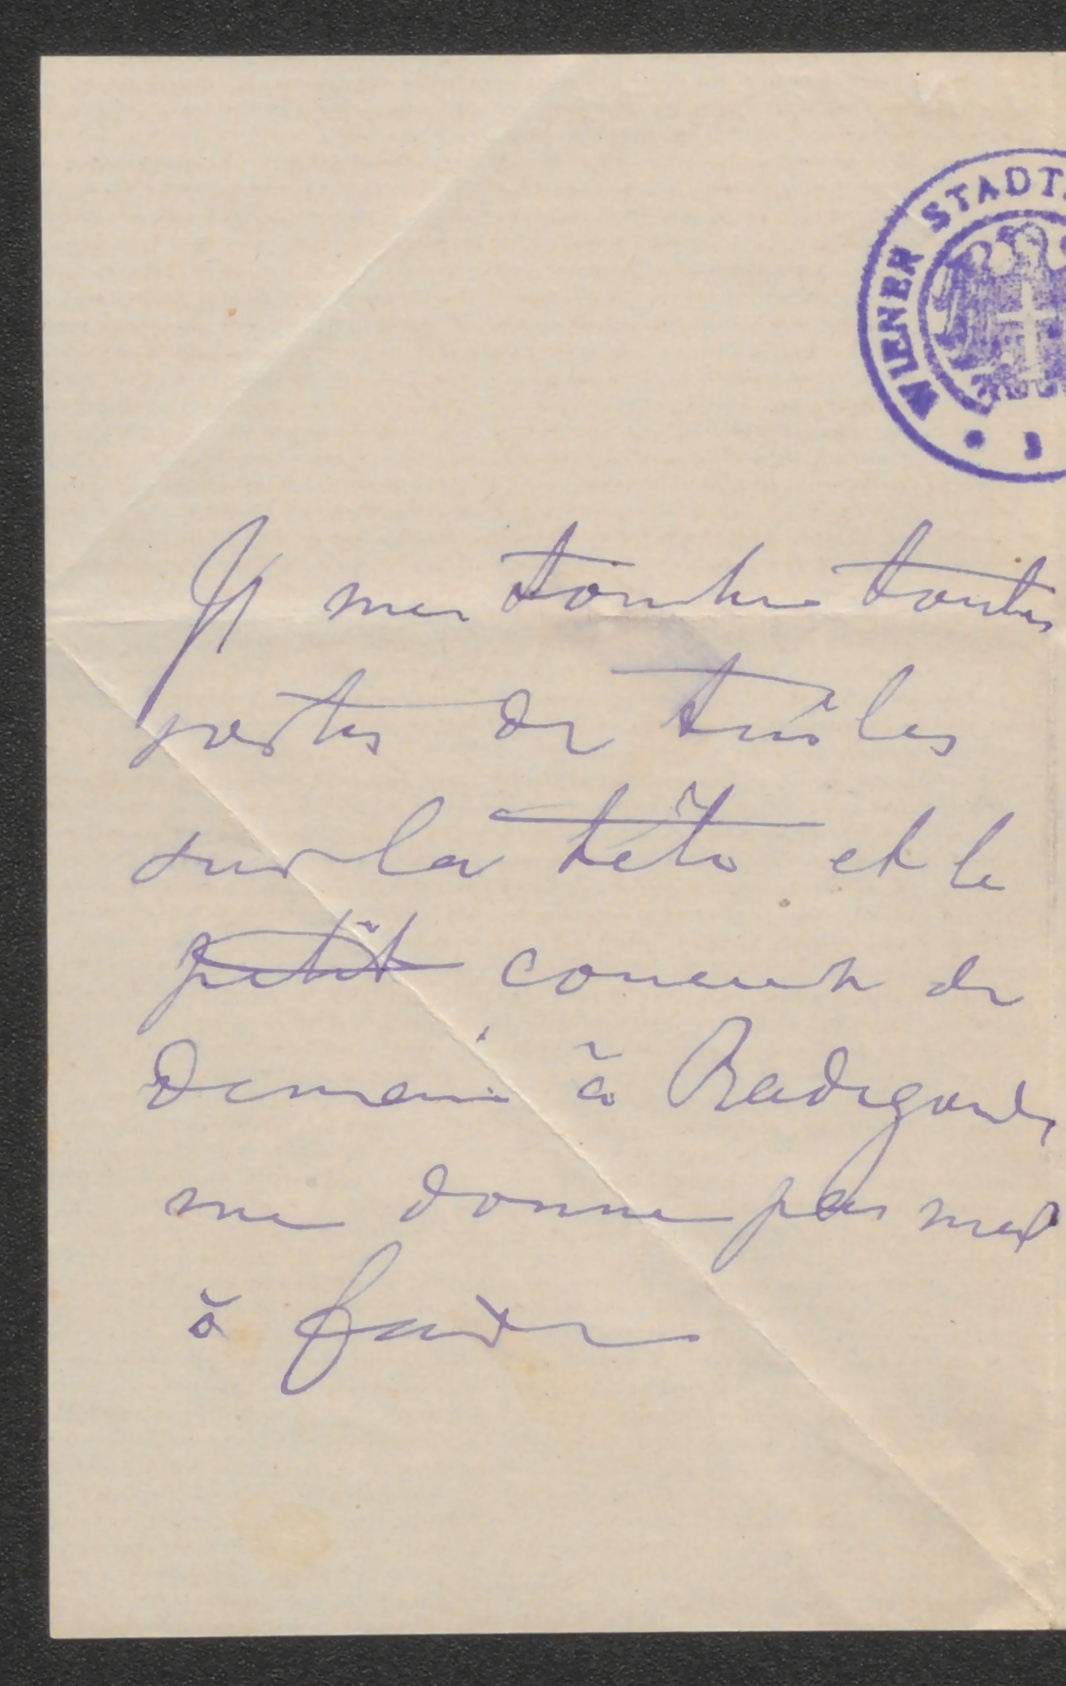 WIENER STADT
Il me tombe toutes
sortes de tuiles
sur la tête et le
petit concert de
demain à Radegonde
me donne pas mal
à faire